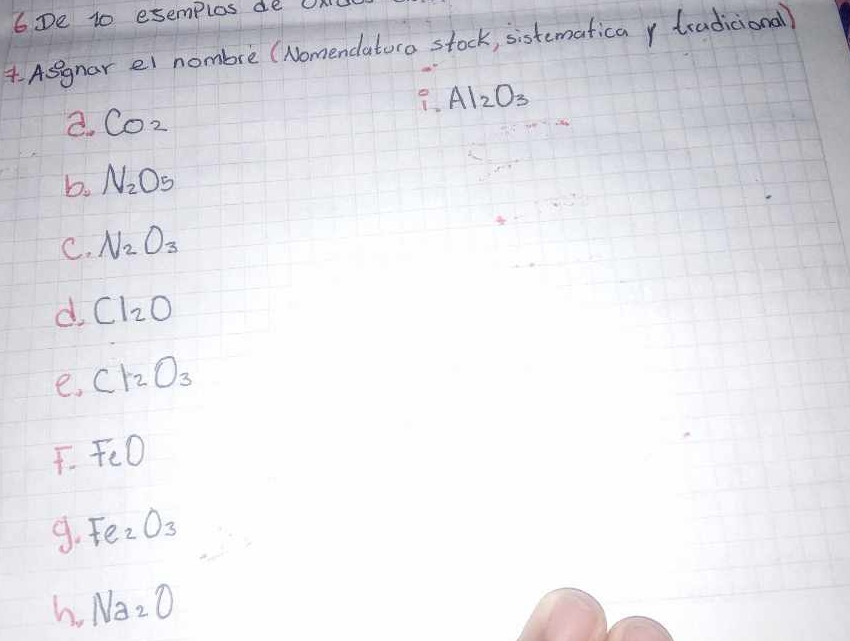 6 De 10 esemplos de
7. Asignar el nombre (Nomendatura stock, sistematica y tradicional)
a. CO2
b. N2O5
c. N2O3
d. Cl2O
e. Cl2O3
F. FeO
g. Fe2O3
h. Na2O
i. Al2O3